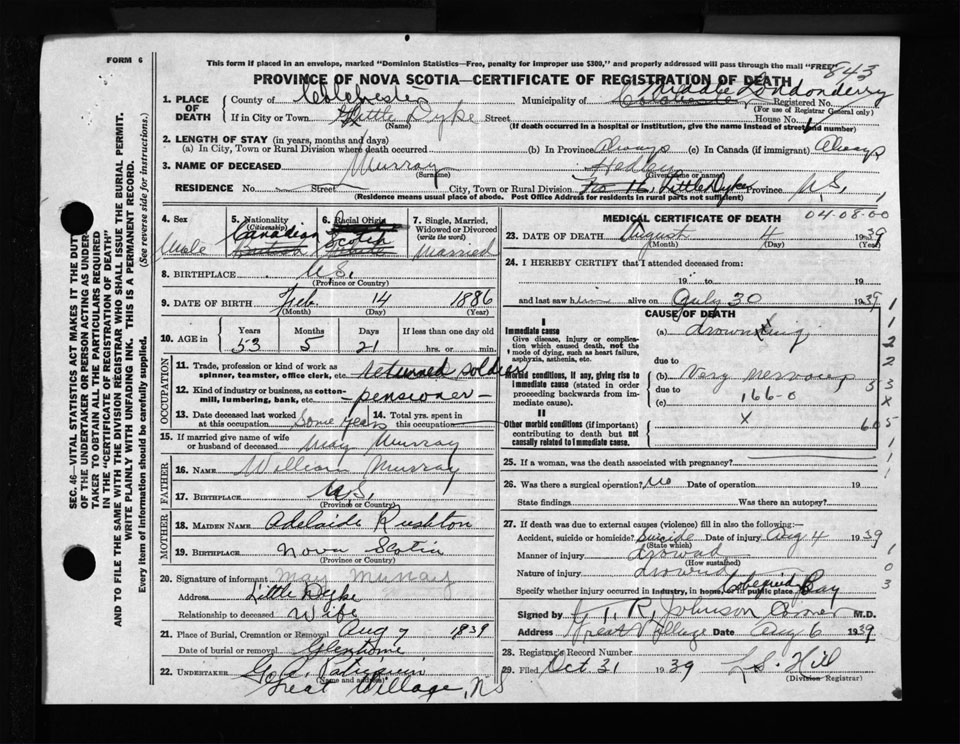 FORM 6
This form if placed in an envelope, marked "Dominion Statistics—Free, penalty for improper use $300," and properly addressed will pass through the mail "FREE"
843
PROVINCE OF NOVA SCOTIA—CERTIFICATE OF REGISTRATION OF DEATH
1. PLACE OF DEATH
County of Colchester Municipality of Colchester Middle Londonderry
Registered No.
(For use of Registrar General only)
If in City or Town Little Dyke Street House No.
(Name) (If death occurred in a hospital or institution, give the name instead of street and number)
2. LENGTH OF STAY (in years, months and days)
(a) In City, Town or Rural Division where death occurred (b) In Province Always (c) In Canada (if immigrant) Always
3. NAME OF DECEASED Murray Hedley
(Surname) (Given name or names)
RESIDENCE No. Street City, Town or Rural Division No 16, Little Dyke Province N.S.
(Residence means usual place of abode. Post Office Address for residents in rural parts not sufficient)
4. Sex Male
5. Nationality (Citizenship) Canadian British
6. Racial Origin Scotch
7. Single, Married, Widowed or Divorced (write the word) Married
8. BIRTHPLACE N.S.
(Province or Country)
9. DATE OF BIRTH Feb. 14 1886
(Month) (Day) (Year)
10. AGE in Years Months Days If less than one day old
53 5 21 hrs. or min.
OCCUPATION
11. Trade, profession or kind of work as spinner, teamster, office clerk, etc. returned soldier
12. Kind of industry or business, as cotton-mill, lumbering, bank, etc. -pensioner-
13. Date deceased last worked at this occupation Some Years
14. Total yrs. spent in this occupation
15. If married give name of wife or husband of deceased May Murray
FATHER
16. NAME William Murray
17. BIRTHPLACE N.S.
(Province or Country)
MOTHER
18. MAIDEN NAME Adelaide Rushton
19. BIRTHPLACE Nova Scotia
(Province or Country)
20. Signature of informant May Murray
Address Little Dyke
Relationship to deceased Wife
21. Place of Burial, Cremation or Removal Aug 7 1939
Date of burial or removal Glenholme
22. UNDERTAKER
(Name and address)
Great Village, NS
MEDICAL CERTIFICATE OF DEATH
04-08-00
23. DATE OF DEATH August 4 1939
(Month) (Day) (Year)
24. I HEREBY CERTIFY that I attended deceased from:
19 to 19
and last saw him alive on July 30 1939
CAUSE OF DEATH
I
Immediate cause
Give disease, injury or complication which caused death, not the mode of dying, such as heart failure, asphyxia, asthenia, etc.
(a) drowning
due to
Morbid conditions, if any, giving rise to immediate cause (stated in order proceeding backwards from immediate cause).
(b) Very nervous
due to
(c) 166-0
II
Other morbid conditions (if important) contributing to death but not causally related to immediate cause.
X
25. If a woman, was the death associated with pregnancy?
26. Was there a surgical operation? no Date of operation 19
State findings Was there an autopsy?
27. If death was due to external causes (violence) fill in also the following:
Accident, suicide or homicide? Suicide Date of injury Aug 4 1939
(State which)
Manner of injury drownd
(How sustained)
Nature of injury drownd
Specify whether injury occurred in industry, in home, or in public place. Cobequid Bay
Signed by T. R. Johnson Coroner M.D.
Address Great Village Date Aug 6 1939
28. Registrar's Record Number
29. Filed Oct 31 1939 L.S. Hill
(Division Registrar)
SEC. 46—VITAL STATISTICS ACT MAKES IT THE DUTY
OF THE UNDERTAKER OR PERSON ACTING AS UNDER-
TAKER TO OBTAIN ALL THE PARTICULARS REQUIRED
IN THE "CERTIFICATE OF REGISTRATION OF DEATH"
AND TO FILE THE SAME WITH THE DIVISION REGISTRAR WHO SHALL ISSUE THE BURIAL PERMIT.
WRITE PLAINLY WITH UNFADING INK. THIS IS A PERMANENT RECORD.
Every item of information should be carefully supplied. (See reverse side for instructions.)